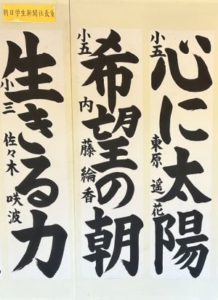 朝日学生新聞社長賞
心に太陽
小五 東原 遥花
希望の朝
小五 内藤 綸香
生きる力
小三 佐々木 咲波